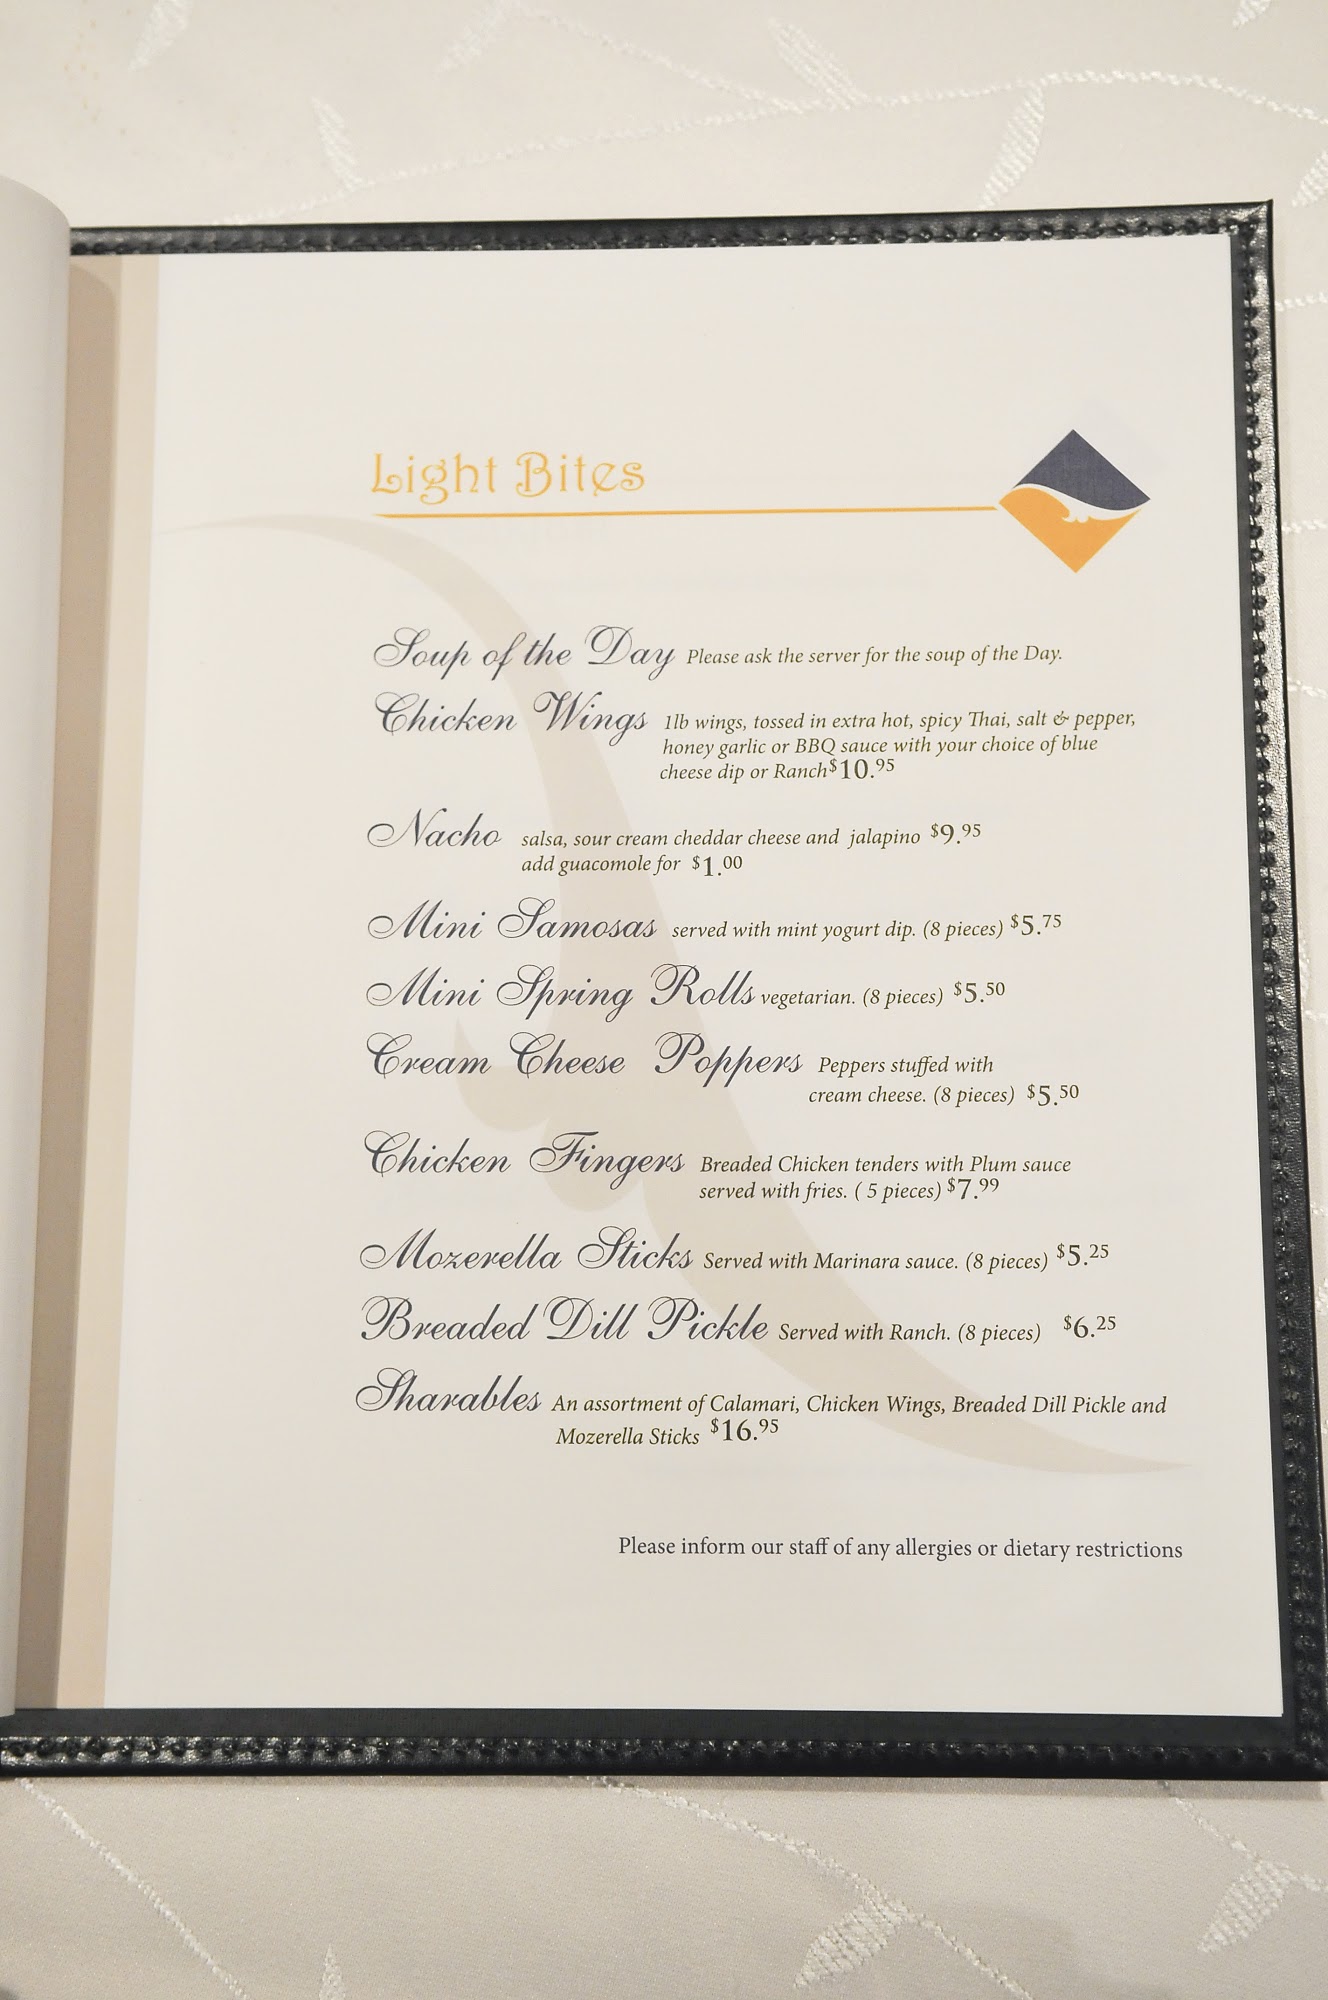 Light Bites
Soup of the Day Please ask the server for the soup of the Day.
Chicken Wings 1lb wings, tossed in extra hot, spicy Thai, salt & pepper,
honey garlic or BBQ sauce with your choice of blue
cheese dip or Ranch $10.95
Nacho salsa, sour cream cheddar cheese and jalapino $9.95
add guacomole for $1.00
Mini Samosas served with mint yogurt dip. (8 pieces) $5.75
Mini Spring Rolls vegetarian. (8 pieces) $5.50
Cream Cheese Poppers Peppers stuffed with
cream cheese. (8 pieces) $5.50
Chicken Fingers Breaded Chicken tenders with Plum sauce
served with fries. ( 5 pieces) $7.99
Mozerella Sticks Served with Marinara sauce. (8 pieces) $5.25
Breaded Dill Pickle Served with Ranch. (8 pieces) $6.25
Sharables An assortment of Calamari, Chicken Wings, Breaded Dill Pickle and
Mozerella Sticks $16.95
Please inform our staff of any allergies or dietary restrictions